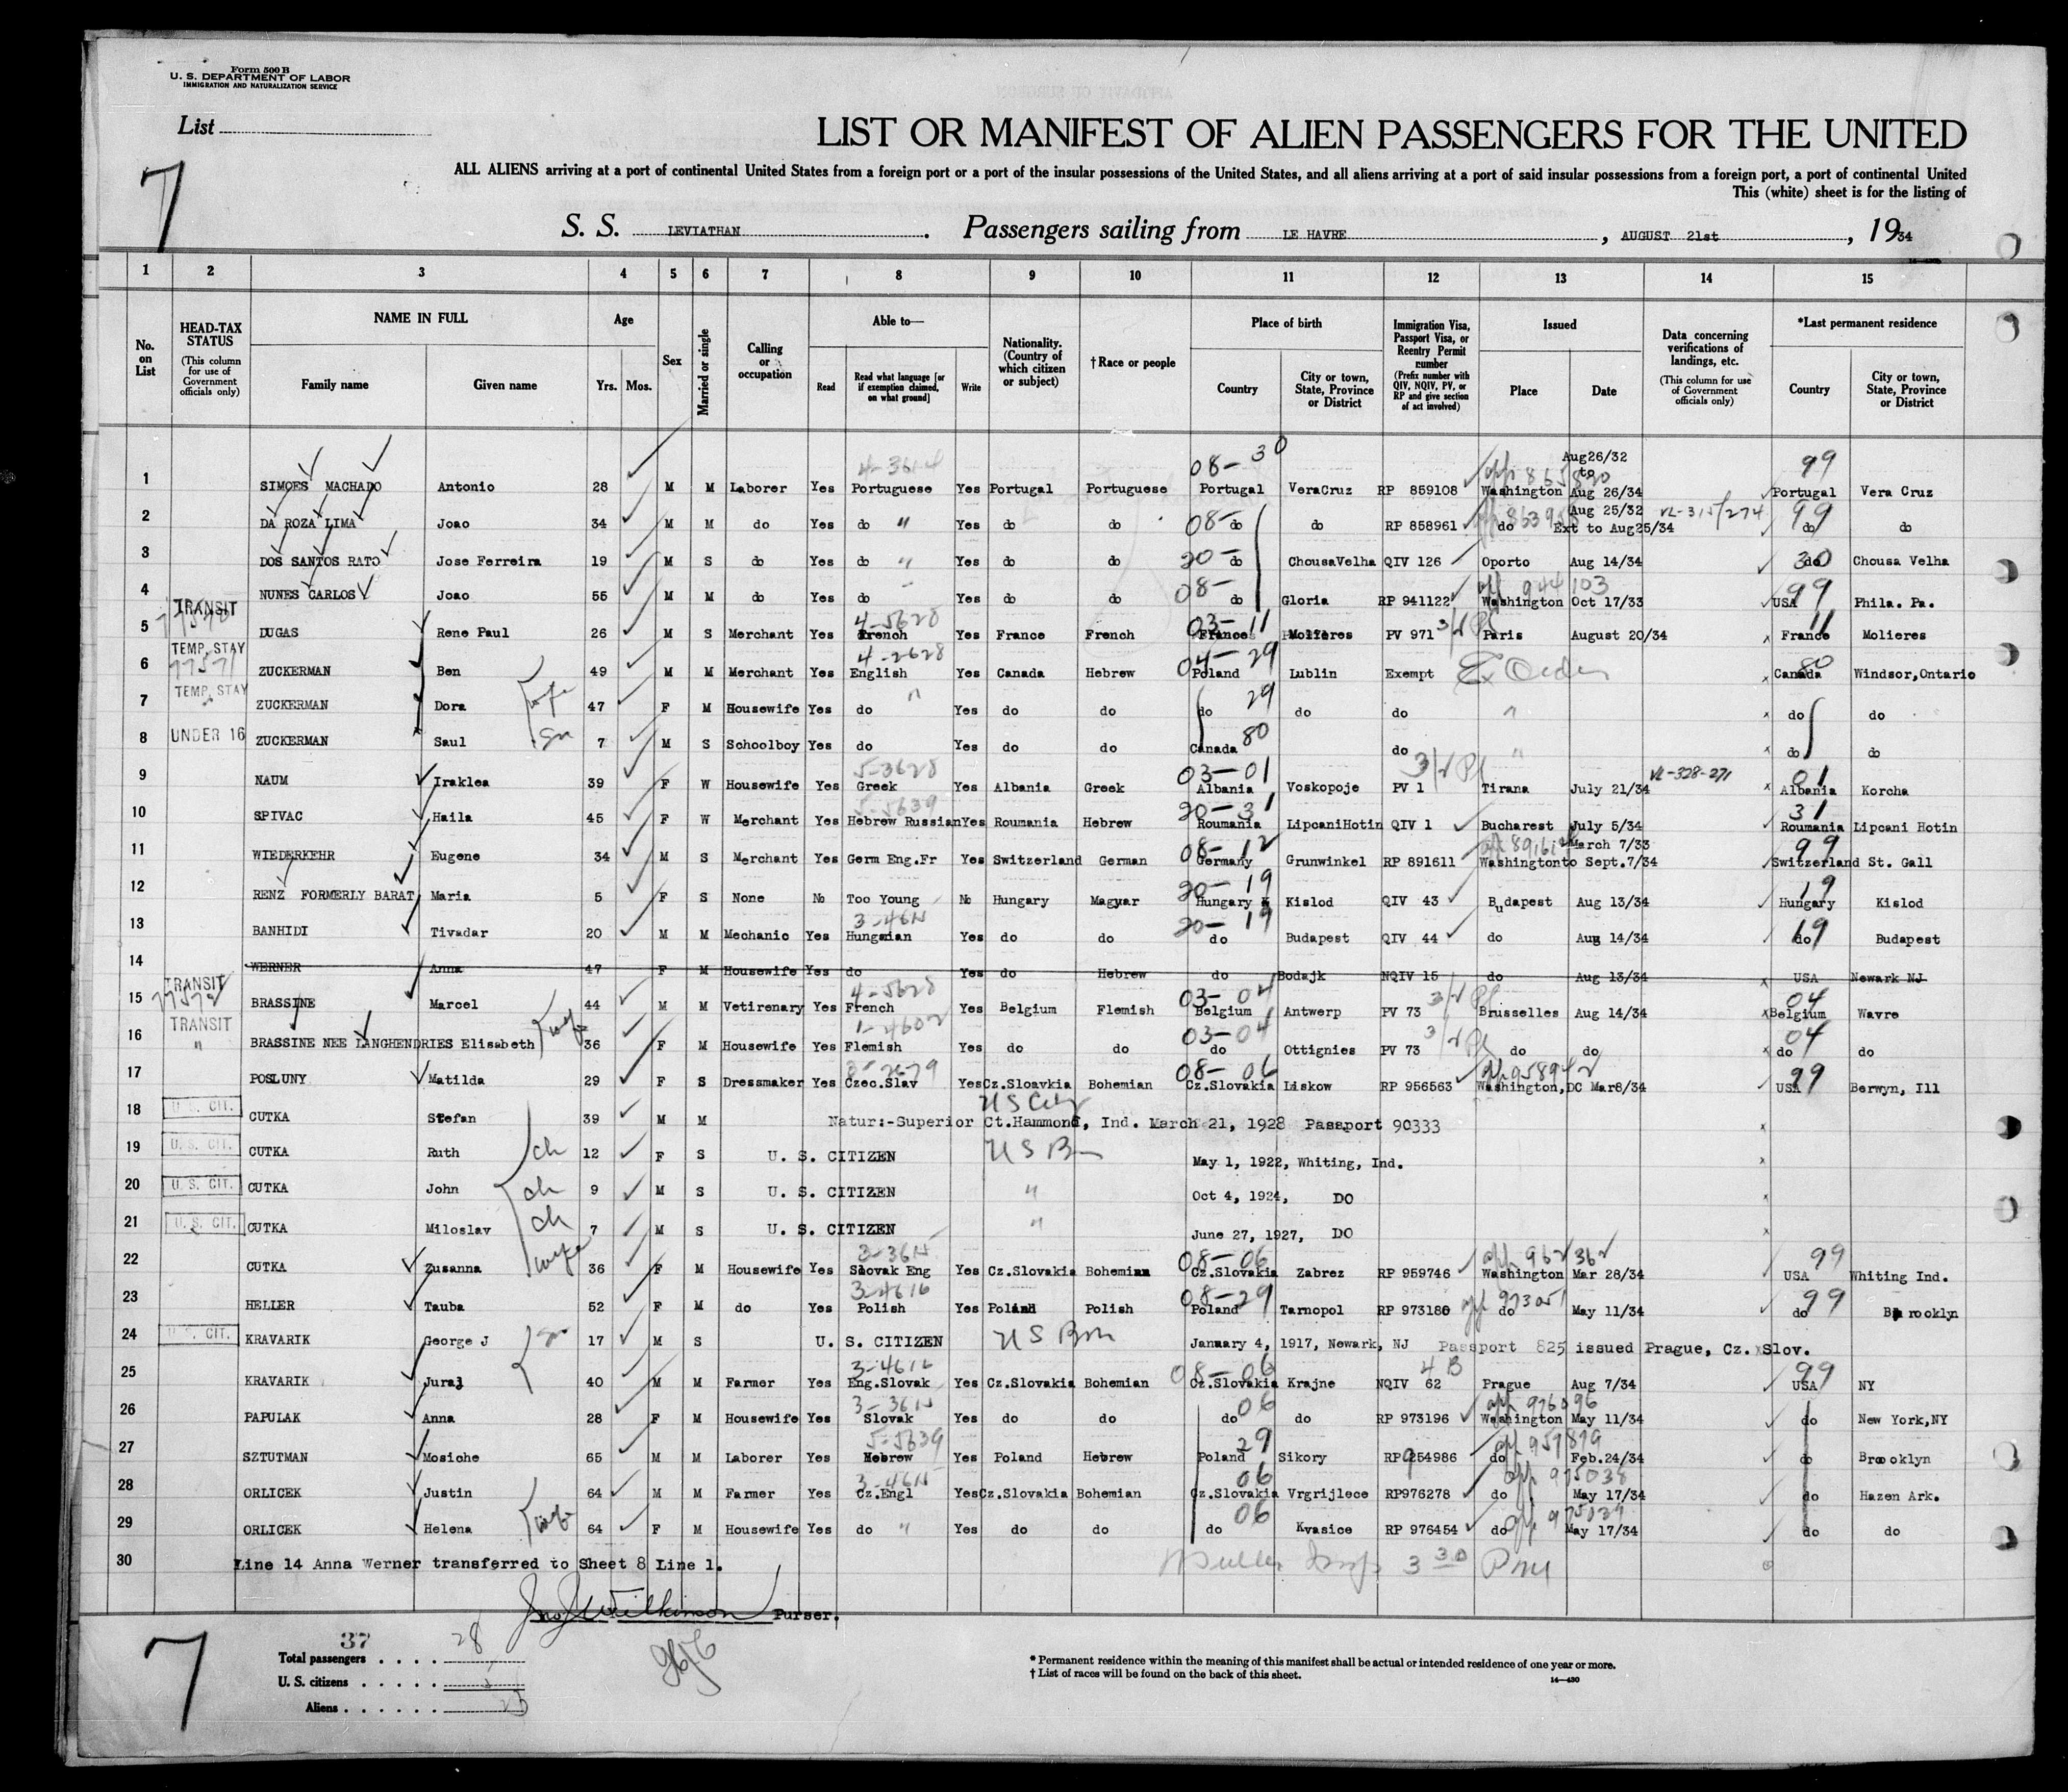 Form 500 B
U. S. DEPARTMENT OF LABOR
IMMIGRATION AND NATURALIZATION SERVICE
List
7
LIST OR MANIFEST OF ALIEN PASSENGERS FOR THE UNITED
ALL ALIENS arriving at a port of continental United States from a foreign port or a port of the insular possessions of the United States, and all aliens arriving at a port of said insular possessions from a foreign port, a port of continental United
This (white) sheet is for the listing of
S. S. LEVIATHAN. Passengers sailing from LE HAVRE, AUGUST 21st, 1934
1 2 3 4 5 6 7 8 9 10 11 12 13 14 15
No. on List
HEAD-TAX STATUS (This column for use of Government officials only)
NAME IN FULL Family name Given name
Age Yrs. Mos.
Sex
Married or single
Calling or occupation
Able to— Read Read what language [or if exemption claimed, on what ground] Write
Nationality. (Country of which citizen or subject)
†Race or people
Place of birth Country City or town, State, Province or District
Immigration Visa, Passport Visa, or Reentry Permit number (Prefix number with QIV, NQIV, PV, or RP and give section of act involved)
Issued Place Date
Data concerning verifications of landings, etc. (This column for use of Government officials only)
*Last permanent residence Country City or town, State, Province or District
4-3614 08-30 Aug26/32 to 99
1 SIMOES MACHADO Antonio 28 M M Laborer Yes Portuguese Yes Portugal Portuguese Portugal VeraCruz RP 859108 Washington Aug 26/34 Portugal Vera Cruz
2 DA ROZA LIMA Joao 34 M M do Yes do " Yes do do 08- do do RP 858961 do Aug 25/32 Ext to Aug25/34 VL-315/274 99 do do
3 DOS SANTOS RATO Jose Ferreira 19 M S do Yes do " Yes do do 20- do ChousaVelha QIV 126 Oporto Aug 14/34 30 do Chousa Velha
4 NUNES CARLOS Joao 55 M M do Yes do Yes do do 08- do Gloria RP 941122 944103 Washington Oct 17/33 USA 99 Phila. Pa.
TRANSIT 4-5628 03-11 11
5 DUGAS Rene Paul 26 M S Merchant Yes French Yes France French France Molieres PV 971 Paris August 20/34 x France Molieres
TEMP. STAY 77571 4-2628 04-29 80
6 ZUCKERMAN Ben 49 M M Merchant Yes English Yes Canada Hebrew Poland Lublin Exempt Ex Order x Canada Windsor,Ontario
TEMP. STAY
7 ZUCKERMAN Dora wife 47 F M Housewife Yes do " Yes do do do 29 do do " x do do
UNDER 16
8 ZUCKERMAN Saul 7 M S Schoolboy Yes do Yes do do Canada 80 do " x do do
5-3628 03-01 VL-328-271 01
9 NAUM Iraklea 39 F W Housewife Yes Greek Yes Albania Greek Albania Voskopoje PV 1 Tirana July 21/34 x Albania Korcha
5-5639 20-31 31
10 SPIVAC Haila 45 F W Merchant Yes Hebrew Russian Yes Roumania Hebrew Roumania LipcaniHotin QIV 1 Bucharest July 5/34 Roumania Lipcani Hotin
08-12 March 7/33 99
11 WIEDERKEHR Eugene 34 M S Merchant Yes Germ Eng.Fr Yes Switzerland German Germany Grunwinkel RP 891611 Washington to Sept.7/34 Switzerland St. Gall
20-19 19
12 RENZ FORMERLY BARAT Maria 5 F S None No Too Young No Hungary Magyar Hungary Kislod QIV 43 Budapest Aug 13/34 Hungary Kislod
3-4614 20-19
13 BANHIDI Tivadar 20 M M Mechanic Yes Hungarian Yes do do do Budapest QIV 44 do Aug 14/34 19 do Budapest
14 WERNER Anna 47 F M Housewife Yes do Yes do Hebrew do Bodajk NQIV 15 do Aug 13/34 x USA Newark NJ
TRANSIT 4-5628 03-04 04
15 BRASSINE Marcel 44 M M Vetirenary Yes French Yes Belgium Flemish Belgium Antwerp PV 73 Brusselles Aug 14/34 x Belgium Wavre
TRANSIT 1-4602 03-04 04
16 " BRASSINE NEE LANGHENDRIES Elisabeth wife 36 F M Housewife Yes Flemish Yes do do do Ottignies PV 73 do do x do do
08-06 99
17 POSLUNY Matilda 29 F S Dressmaker Yes Czec.Slav Yes Cz.Sloavkia Bohemian Cz.Slovakia Liskow RP 956563 Washington,DC Mar8/34 USA Berwyn, Ill
U. S. CIT.
18 CUTKA Stefan 39 M M Natur:-Superior Ct.Hammond, Ind. March 21, 1928 Passport 90333 x
U. S. CIT.
19 CUTKA Ruth ch 12 F S U. S. CITIZEN U S Bn May 1, 1922, Whiting, Ind. x
U. S. CIT.
20 CUTKA John ch 9 M S U. S. CITIZEN " Oct 4, 1924, DO x
U. S. CIT.
21 CUTKA Miloslav ch 7 M S U. S. CITIZEN " June 27, 1927, DO x
3-3614 08-06 99
22 CUTKA Zusanna wife 36 F M Housewife Yes Slovak Eng Yes Cz.Slovakia Bohemian Cz.Slovakia Zabrez RP 959746 Washington Mar 28/34 USA Whiting Ind.
3-4616 08-29 99
23 HELLER Tauba 52 F M do Yes Polish Yes Poland Polish Poland Tarnopol RP 973180 973051 do May 11/34 do Brooklyn
U. S. CIT.
24 KRAVARIK George J 17 M S U. S. CITIZEN U S Born January 4, 1917, Newark, NJ Passport 825 issued Prague, Cz. Slov.
08-06 4 B 99
25 KRAVARIK Juraj 40 M M Farmer Yes Eng.Slovak Yes Cz.Slovakia Bohemian Cz.Slovakia Krajne NQIV 62 Prague Aug 7/34 USA NY
3-3614 06 976096
26 PAPULAK Anna 28 F M Housewife Yes Slovak Yes do do do do RP 973196 Washington May 11/34 do New York,NY
5-5639 29 957879
27 SZTUTMAN Mosiche 65 M M Laborer Yes Hebrew Yes Poland Hebrew Poland Sikory RP 954986 do Feb.24/34 do Brooklyn
3-4614 06 975038
28 ORLICEK Justin 64 M M Farmer Yes Cz.Engl Yes Cz.Slovakia Bohemian Cz.Slovakia Vrgrijlece RP976278 do May 17/34 do Hazen Ark.
06 975039
29 ORLICEK Helena wife 64 F M Housewife Yes do " Yes do do do Kvasice RP 976454 do May 17/34 do do
30 Line 14 Anna Werner transferred to Sheet 8 Line 1.
3 30 PM
Jno J Wilkinson Purser.
7
37
Total passengers . . . . 28
U. S. citizens . . . . . 5
Aliens . . . . . . 23
* Permanent residence within the meaning of this manifest shall be actual or intended residence of one year or more.
† List of races will be found on the back of this sheet.
14—430